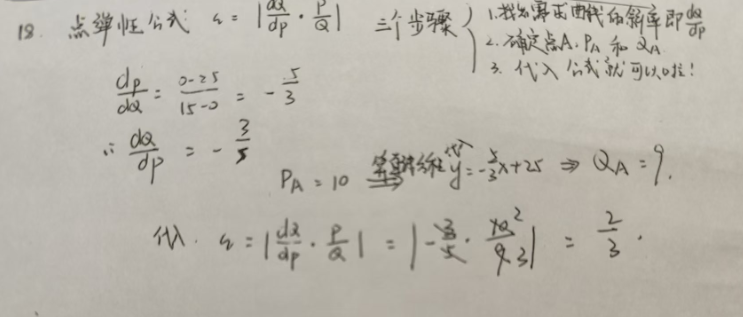 18. 点弹性公式 η = |dQ/dp · P/Q| 三个步骤
1. 找出需求曲线的斜率即 dQ/dp
2. 确定点A. P_A 和 Q_A
3. 代入公式就可以啦!
dp/dQ = (0-25)/(15-0) = -5/3
∴ dQ/dp = -3/5
P_A = 10 y = -5/3x+25 ⇒ Q_A = 9.
代入. η = |dQ/dp · P/Q| = |-3/5 · 10 2/9 3| = 2/3.